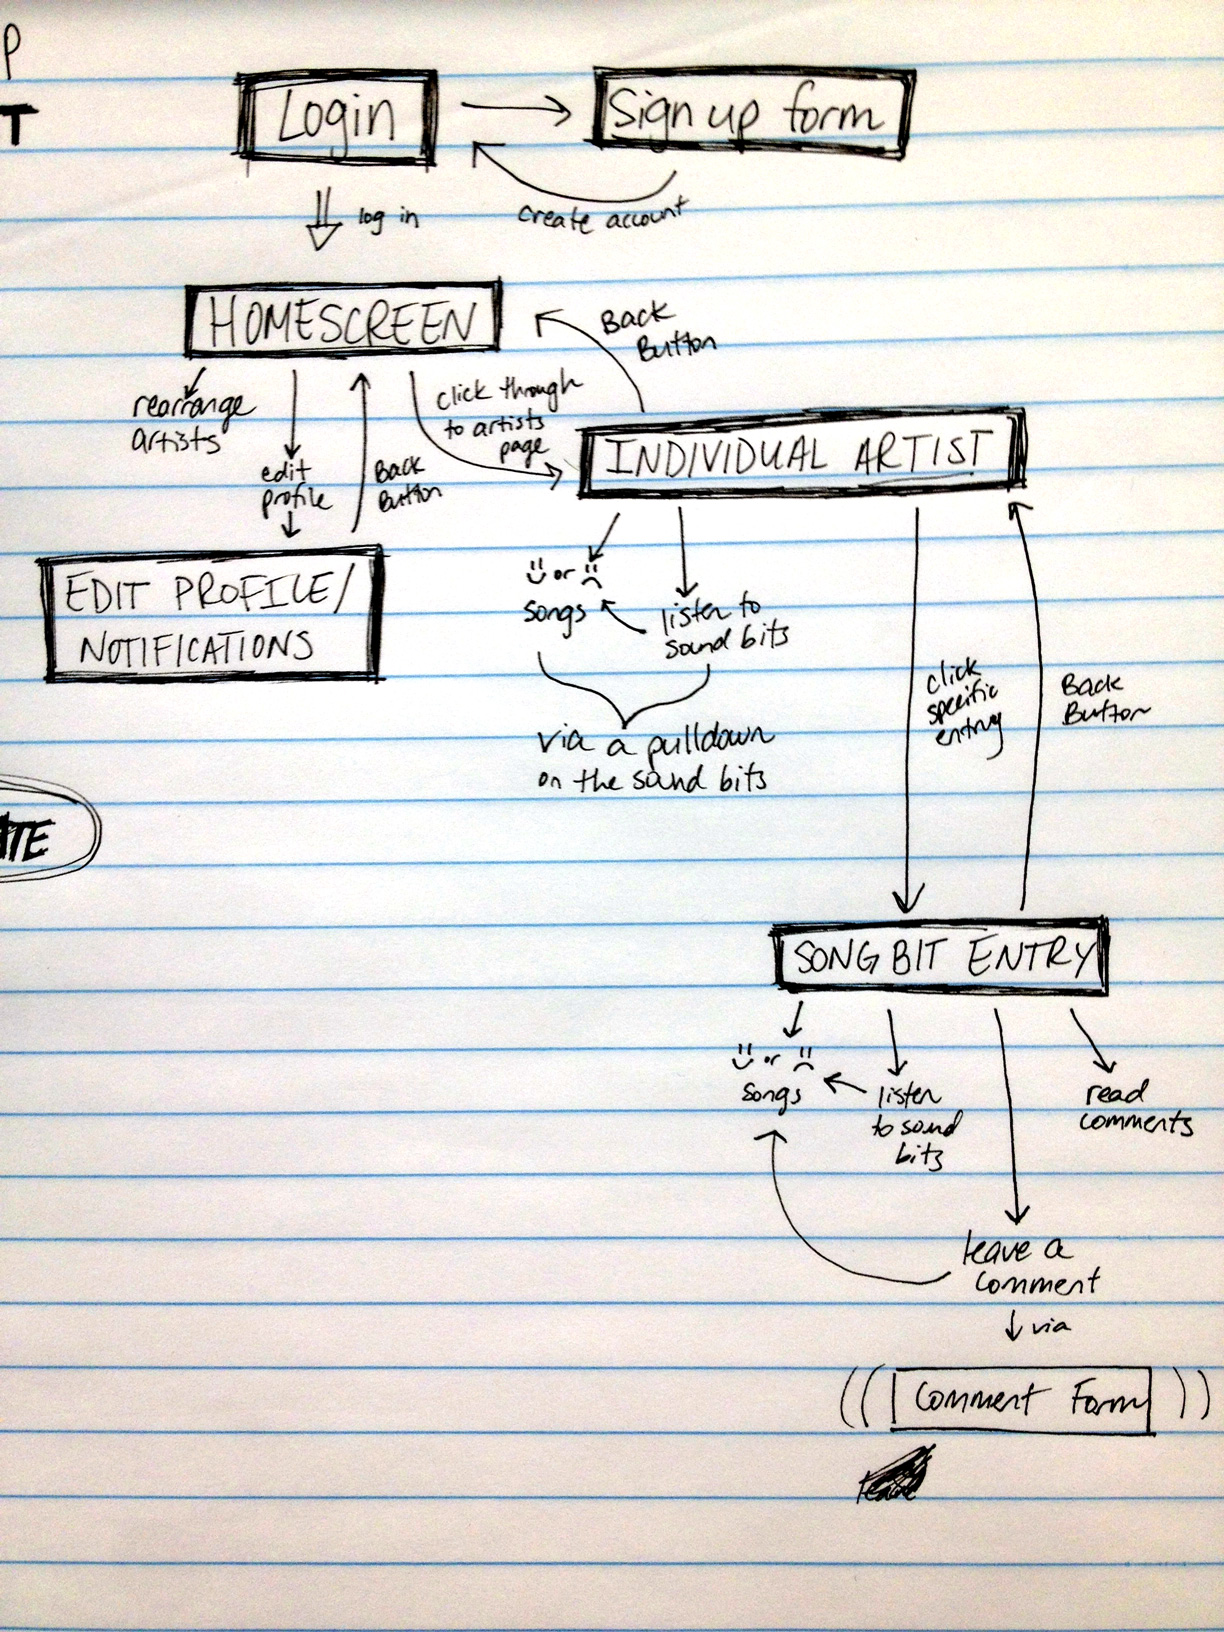 P
T
Login
Sign up form
log in
create account
HOMESCREEN
Back
Button
rearrange
artists
click through
to artists
page
edit
profile
Back
Button
INDIVIDUAL ARTIST
EDIT PROFILE/
NOTIFICATIONS
or
songs
listen to
sound bits
via a pulldown
on the sound bits
click
specific
entry
Back
Button
SONG BIT ENTRY
or
songs
listen
to sound
bits
read
comments
leave a
comment
via
((Comment Form))